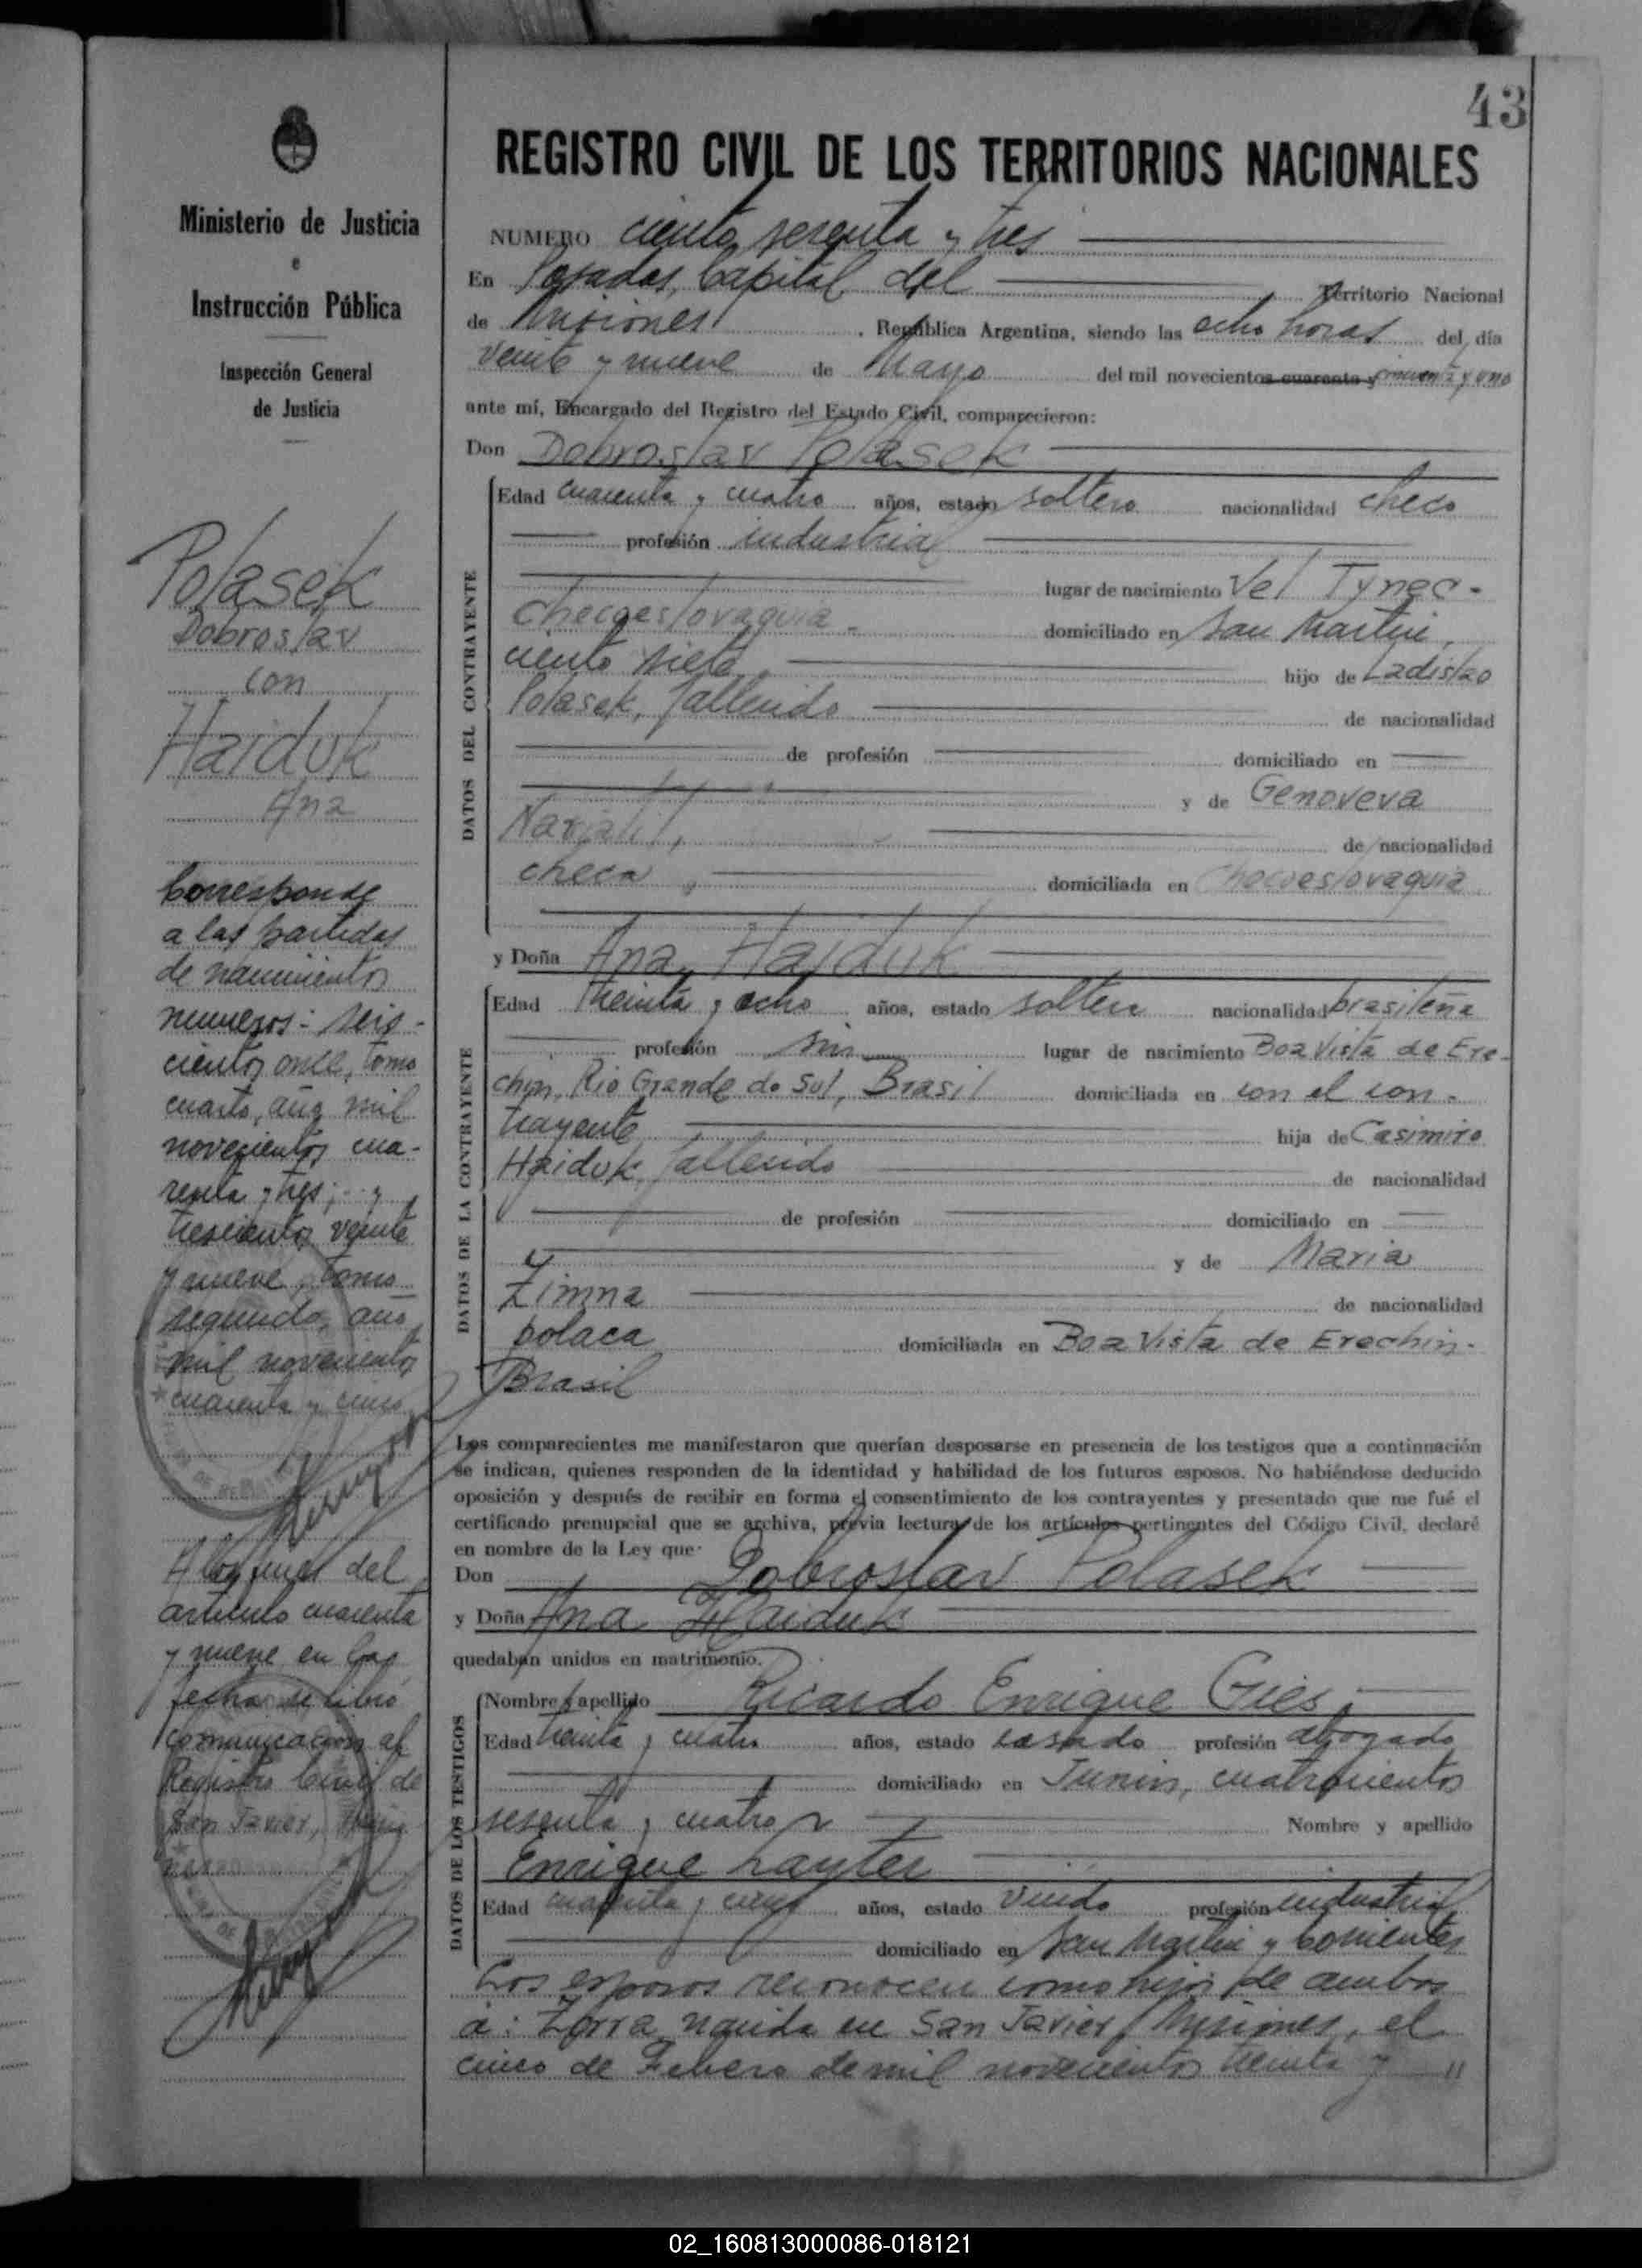 43
Ministerio de Justicia
e
Instrucción Pública
Inspección General
de Justicia
Polasek
Dobroslav
con
Haiduk
Ana
Corresponde
a las partidas
de nacimientos
numeros: seis-
cientos once, tomo
cuarto, año mil
novecientos cua-
renta y tres; y
trescientos veinte
y nueve, tomo
segundo, año
mil novecientos
cuarenta y cinco
A los fines del
artículo cuarenta
y nueve en la
fecha se libró
comunicación al
Registro Civil de
San Javier,
REGISTRO CIVIL DE LOS TERRITORIOS NACIONALES
NUMERO ciento sesenta y tres
En Posadas, Capital del Territorio Nacional
de Misiones, República Argentina, siendo las ocho horas del día
veinte y nueve de Mayo del mil novecientos cuarenta y cincuenta y uno
ante mí, Encargado del Registro del Estado Civil, comparecieron:
Don Dobroslav Polasek
DATOS DEL CONTRAYENTE
Edad cuarenta y cuatro años, estado soltero nacionalidad checo
profesión industrial
lugar de nacimiento Vel Tynec-
Checoeslovaquia- domiciliado en San Martin,
ciento siete hijo de Ladislao
Polasek, fallecido de nacionalidad
de profesión domiciliado en
y de Genoveva
de nacionalidad
checa, domiciliada en Checoeslovaquia
y Doña Ana Haiduk
DATOS DE LA CONTRAYENTE
Edad treinta y ocho años, estado soltera nacionalidad brasileña
profesión sin lugar de nacimiento Boa Vista de Ere-
chin, Rio Grande do Sul, Brasil domiciliada en con el con-
trayente hija de Casimiro
Haiduk, fallecido de nacionalidad
de profesión domiciliado en
y de Maria
Zimna de nacionalidad
polaca domiciliada en Boa Vista de Erechin-
Brasil
Los comparecientes me manifestaron que querían desposarse en presencia de los testigos que a continuación
se indican, quienes responden de la identidad y habilidad de los futuros esposos. No habiéndose deducido
oposición y después de recibir en forma el consentimiento de los contrayentes y presentado que me fué el
certificado prenupcial que se archiva, previa lectura de los artículos pertinentes del Código Civil, declaré
en nombre de la Ley que
Don Dobroslav Polasek
y Doña Ana Haiduk
quedaban unidos en matrimonio.
DATOS DE LOS TESTIGOS
Nombre y apellido Ricardo Enrique Gies,
Edad treinta y cuatro años, estado casado profesión abogado
domiciliado en Junin, cuatrocientos
sesenta y cuatro Nombre y apellido
Enrique
Edad cuarenta y cinco años, estado viudo profesión industrial
domiciliado en San Martin y Corrientes
Los esposos reconocen como hijos de ambos
a: Zorra nacida en San Javier, Misiones, el
cinco de Febrero de mil novecientos treinta y "
02_160813000086-018121